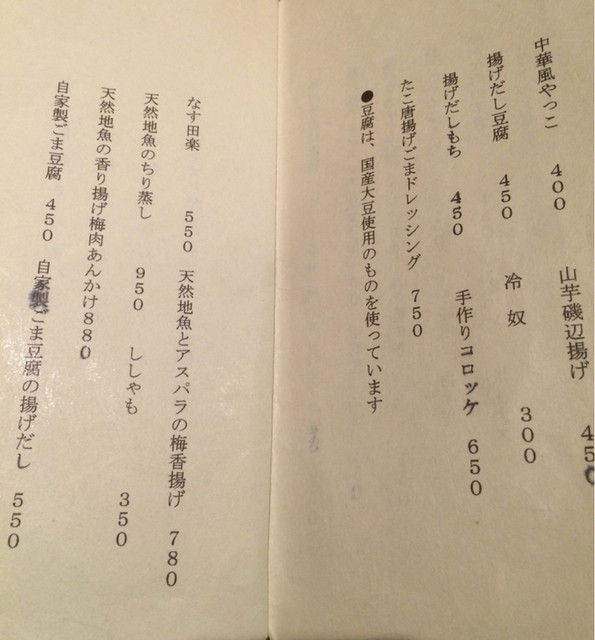 中華風やっこ 400
山芋磯辺揚げ 450
揚げだし豆腐 450
冷奴 300
揚げだしもち 450
手作りコロッケ 650
たこ唐揚げごまドレッシング 750
●豆腐は、国産大豆使用のものを使っています
なす田楽 550
天然地魚とアスパラの梅香揚げ 780
天然地魚のちり蒸し 950
ししゃも 350
天然地魚の香り揚げ梅肉あんかけ880
自家製ごま豆腐 450
自家製ごま豆腐の揚げだし 550